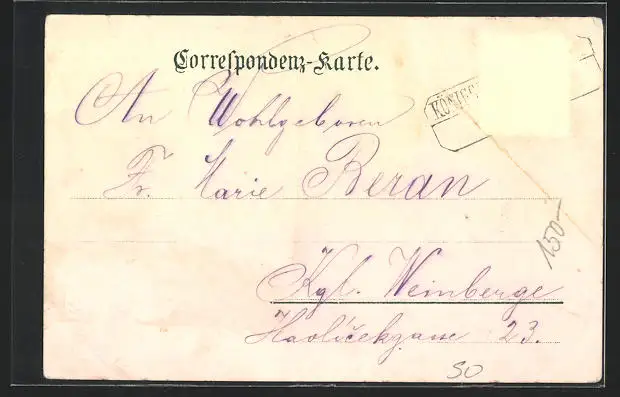 Correspondenz-Karte.
KÖNIGG
An Wohlgeboren
Fr. Marie Beran
150—
Kgl. Weinberge
Havlíčekgasse 23.
SO